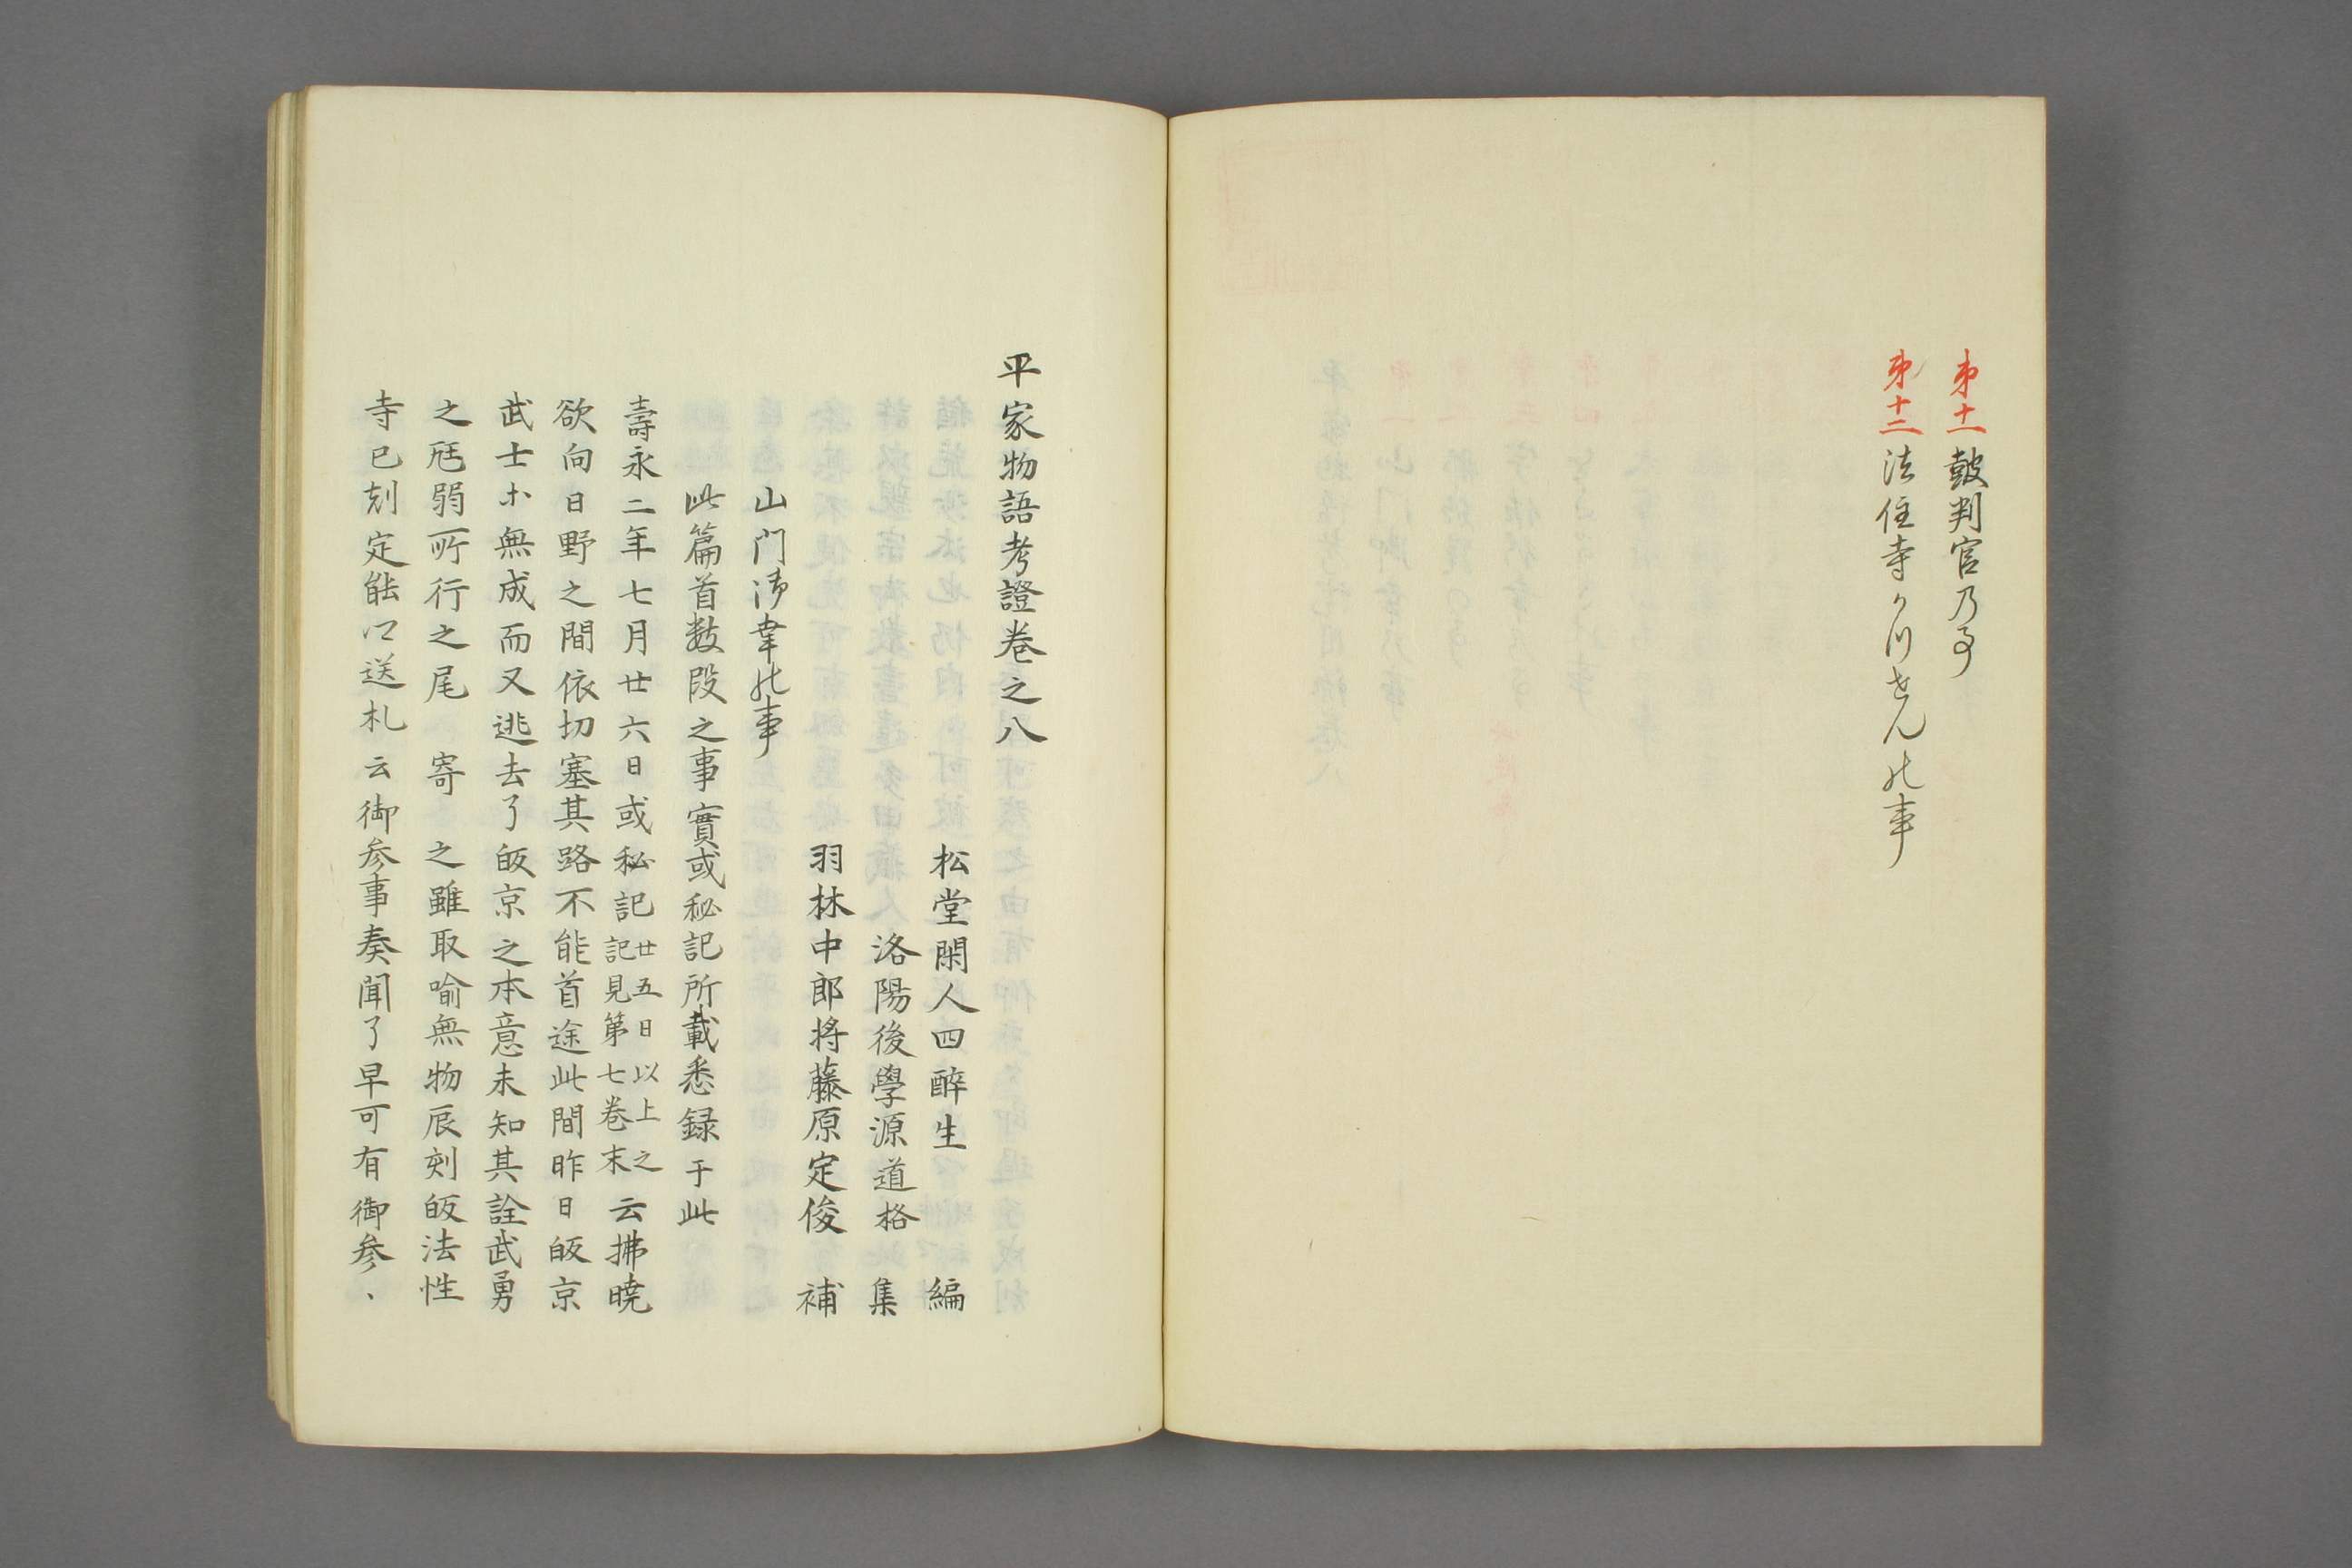 第十一 鼓判官乃事
第十二 法住寺かつせんの事
平家物語考證卷之八
松堂閑人四醉生 編
洛陽後學源道格 集
羽林中郎將藤原定俊 補
山门御幸の事
此篇首数段之事實或秘記所載悉録于此
壽永二年七月廿六日或秘記廿五日以上之記見第七卷末云拂曉
欲向日野之間依切塞其路不能首途此間昨日皈京
武士ホ無成而又逃去了皈京之本意未知其詮武勇
之尫弱所行之尾 寄 之雖取喩無物辰刻皈法性
寺已刻定能以送札云御参事奏聞了早可有御参、